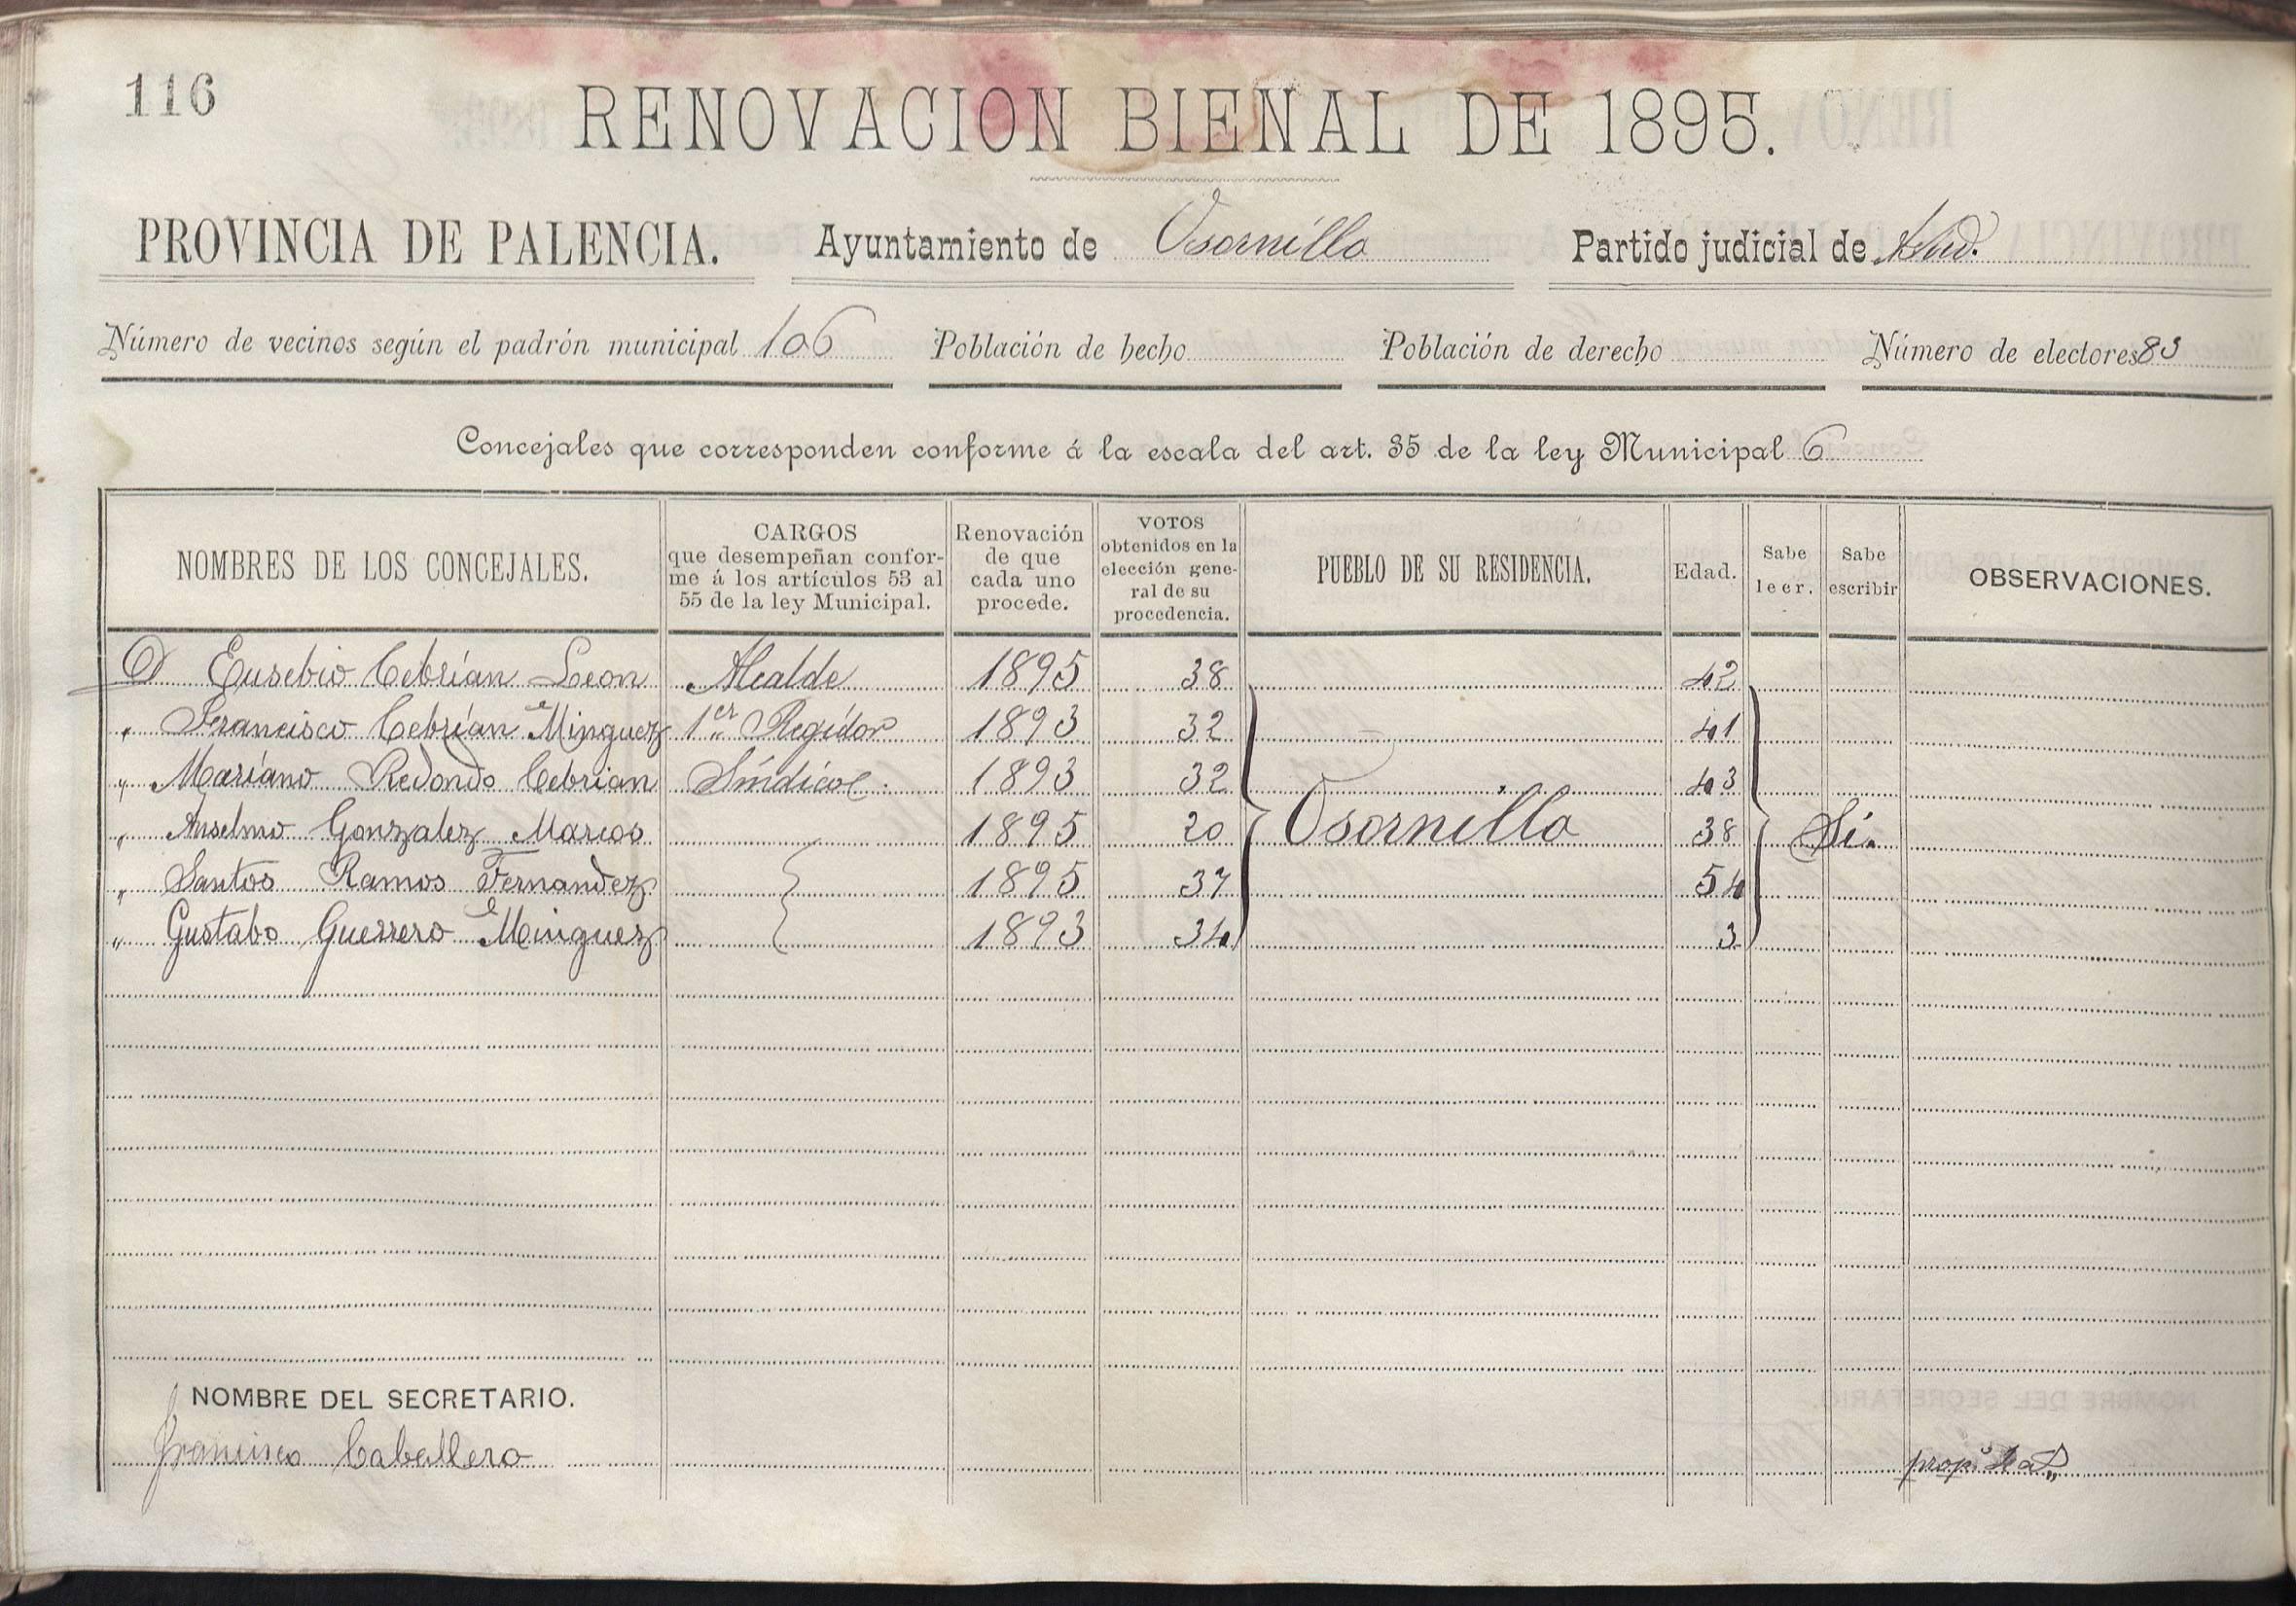 116
RENOVACION BIENAL DE 1895.
PROVINCIA DE PALENCIA. Ayuntamiento de Osornillo Partido judicial de
Número de vecinos según el padrón municipal 106 Población de hecho Población de derecho Número de electores 83
Concejales que corresponden conforme á la escala del art. 35 de la ley Municipal 6
NOMBRES DE LOS CONCEJALES. CARGOS que desempeñan conforme á los artículos 53 al 55 de la ley Municipal. Renovación de que cada uno procede. VOTOS obtenidos en la elección general de su procedencia. PUEBLO DE SU RESIDENCIA. Edad. Sabe leer. Sabe escribir OBSERVACIONES.
D Eusebio Cebrían Leon Alcalde 1895 38 42
" Francisco Cebrían Minguez 1er Regidor 1893 32 41
" Mariano Redondo Cebrian Síndico 1893 32 43
" Anselmo Gonzalez Marcos 1895 20 Osornillo 38 Si.
" Santos Ramos Fernandez 1895 37 54
" Gustabo Guerrero Minguez 1893 34 3
NOMBRE DEL SECRETARIO.
Francisco Caballero